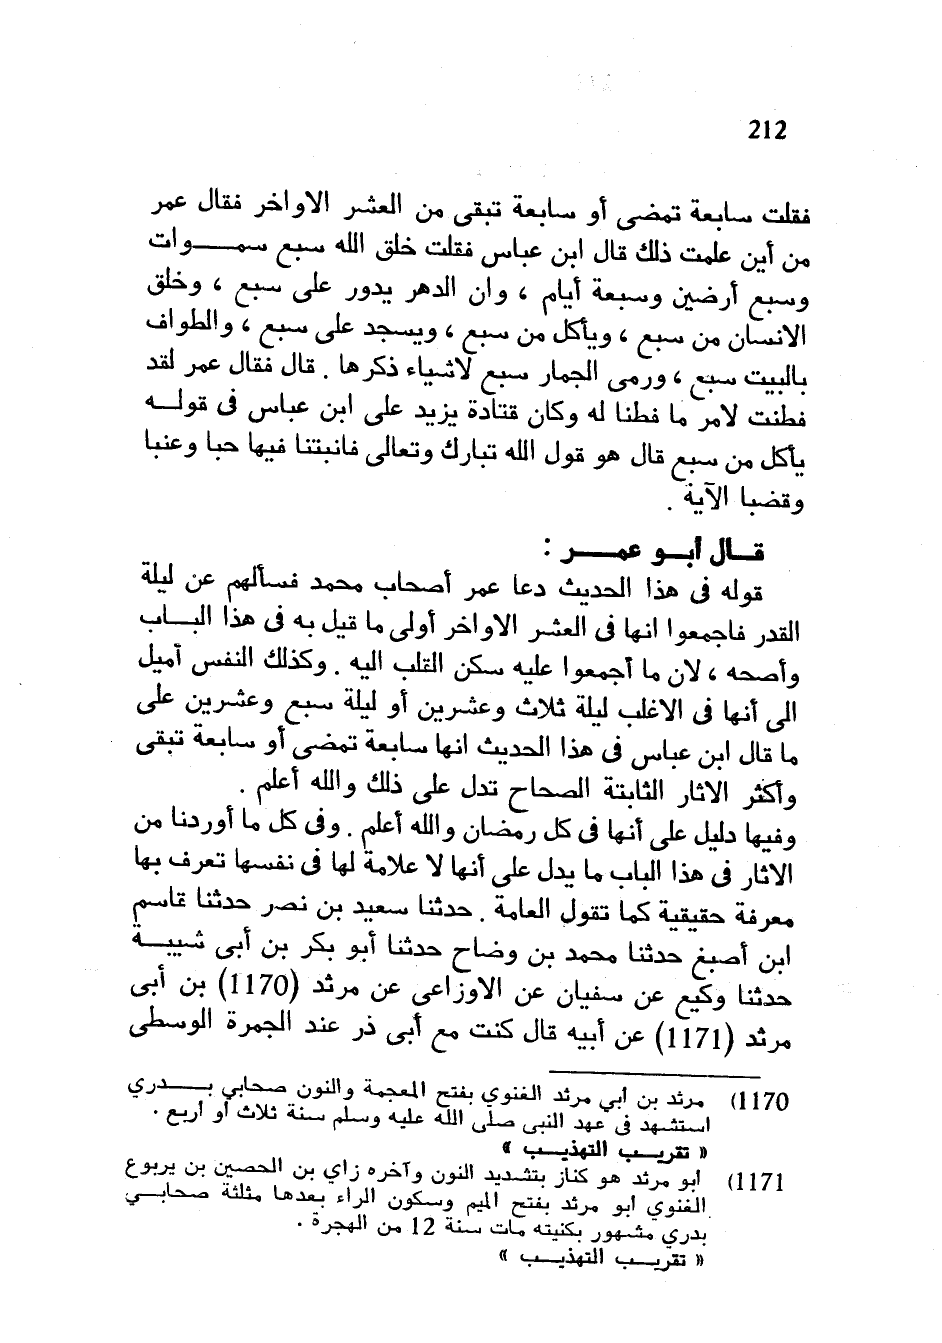 212
فقلت سابعة تمضى أو سابعة تبقى من العشر الاواخر فقال عمر
من أين علمت ذلك قال ابن عباس فقلت خلق الله سبع سمـــوات
وسبع أرضين وسبعة أيام ، وان الدهر يدور على سبع ، وخلق
الانسان من سبع ، ويأكل من سبع ، ويسجد على سبع ، والطواف
بالبيت سبع ، ورمى الجمار سبع لاشياء ذكرها . قال فقال عمر لقد
فطنت لامر ما فطنا له وكان قتادة يزيد على ابن عباس فى قولـــه
يأكل من سبع قال هو قول الله تبارك وتعالى فانبتنا فيها حبا وعنبا
وقضبا الآية .
قــال أبــو عمــــر :
قوله فى هذا الحديث دعا عمر أصحاب محمد فسألهم عن ليلة
القدر فاجمعوا انها فى العشر الاواخر أولى ما قيل به فى هذا البـــاب
وأصحه ، لان ما أجمعوا عليه سكن القلب اليه . وكذلك النفس أميل
الى أنها فى الاغلب ليلة ثلاث وعشرين أو ليلة سبع وعشرين على
ما قال ابن عباس فى هذا الحديث انها سابعة تمضى أو سابعة تبقى
وأكثر الاثار الثابتة الصحاح تدل على ذلك والله أعلم .
وفيها دليل على أنها فى كل رمضان والله أعلم . وفى كل ما أوردنا من
الاثار فى هذا الباب ما يدل على أنها لا علامة لها فى نفسها تعرف بها
معرفة حقيقية كما تقول العامة . حدثنا سعيد بن نصر حدثنا قاسم
ابن أصبغ حدثنا محمد بن وضاح حدثنا أبو بكر بن أبى شيبـــة
حدثنا وكيع عن سفيان عن الاوزاعى عن مرثد (1170) بن أبى
مرثد (1171) عن أبيه قال كنت مع أبى ذر عند الجمرة الوسطى
1170) مرثد بن أبي مرثد الغنوي بفتح المعجمة والنون صحابي بـــدري
استشهد فى عهد النبى صلى الله عليه وسلم سنة ثلاث أو أربع .
« تقريــب التهذيــب »
1171) أبو مرثد هو كناز بتشديد النون وآخره زاي بن الحصين بن يربوع
الغنوي ابو مرثد بفتح الميم وسكون الراء بعدها مثلثة صحابــي
بدري مشهور بكنيته مات سنة 12 من الهجرة .
« تقريــب التهذيــب »